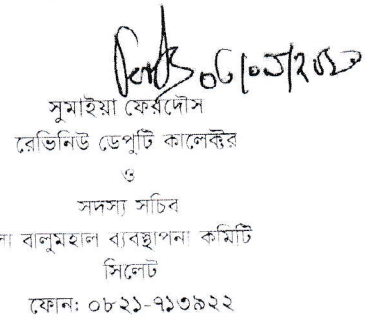 সুমাইয়া ফেরদৌস
রেভিনিউ ডেপুটি কালেক্টর
ও
সদস্য সচিব
বালুমহাল ব্যবস্থাপনা কমিটি
সিলেট
ফোন: ০৮২১-৭১৩৯২২